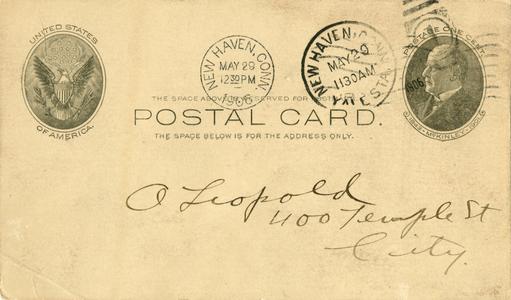 UNITED STATES
OF AMERICA.
NEW HAVEN, CONN.
MAY 29
12 30 PM
1906
NEW HAVEN, CONN.
MAY 29
11 30 AM
YALE STA.
1906
POSTAGE ONE CENT.
McKINLEY
THE SPACE ABOVE IS RESERVED FOR POSTMARK.
POSTAL CARD.
THE SPACE BELOW IS FOR THE ADDRESS ONLY.
A Leopold
400 Temple St
City.